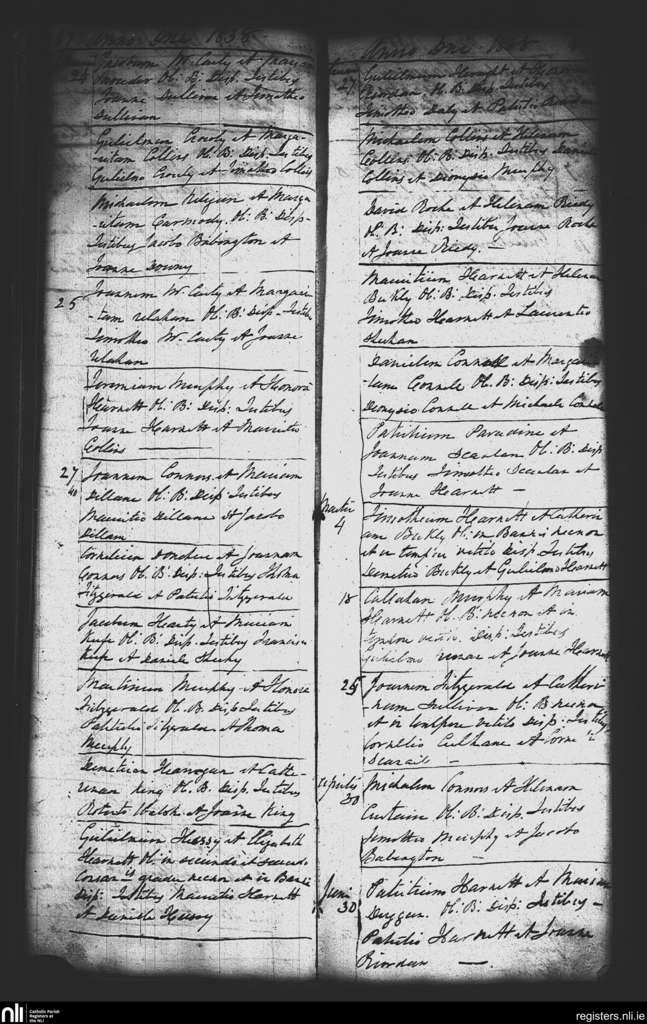 Anno Dni 1838
24 Jacobum McCarty et
Ob: B: Disp: Testibus
Joanne Sullivan et Timotheo
Sullivan
Gulielmum Crowly et Marga-
-ritam Collins Ob: B: Disp: Testibus
Gulielmo Crowly et Timotheo Collins
Michaelem Religan et Marga
-ritam Garmody Ob: B: Disp-
Testibus Jacobo Babington et
Joanne Downy
25 Joannem McCarty et Margari-
-tam Ob: B: Disp- Testibus
Timotheo McCarty et Joanne
Jeremiam Murphy et Honora
Harnett Ob: B: Disp: Testibus
Joanne Harnett et Mauritio
Collins
27 Joannem Connors et Mariam
Dillane Ob: B: Disp Testibus
Mauritio Dillane et Jacobo
Dillane
Cornelium Donohue et Joannam
Connors Ob: B: Disp: Testibus Thoma
Fitzgerald et Patritio Fitzgerald
Jacobum Hearty et Mariam
Keefe Ob: B: Disp: Testibus
Keefe et Daniele Sheehy
Martinum Murphy et Honora
Fitzgerald Ob: B. Disp Testibus
Patritio Fitzgerald et Thoma
Murphy
Demetrium Hannegan et Cathe-
-rinam King Ob. B. Disp. Testibus
Roberto Walsh et Joanne King
Gulielmum Hussy et Elizabeth
Harnett Ob: in secundo et secundo
Consanis gradu necnon et in Bannis
Disp: Testibus Mauritio Harnett
et Daniele Hussy
Anno Dni 1838
27 Gulielmum et
Riordan Ob. B. Disp. Testibus
Timotheo Daly et Patritio
Michaelem Collins et Helenam
Collins Ob: B: Disp: Testibus Daniele
Collins et Dionysio Murphy
David Roche et Helenam Reidy
Ob: B: Disp: Testibus Joanne Roche
et Joanne Reidy
Mauritium Harnett et Helenam
Buckly Ob: B: Disp: Testibus
Timotheo Harnett et Laurentio
Sheehan
Danielem Connell et Margari
-tam Connell Ob: B: Disp: Testibus
Dionysio Connell et Michaele Connell
Patritium et
Joannam Scanlan Ob: B: Disp
Testibus Timotheo Scanlan et
Joanne Harnett
Martii
4 Timotheum Harnett et Catherin
am Buckly Ob: in Bannis necnon
et in tempore vetito Disp Testibus
Demetrio Buckly et Gulielmo Harnett
18 Callahan Murphy et Mariam
Harnett Ob: B: necnon et in
tempore vetito. Disp: Testibus
Gulielmo et Joanne Harnett
25 Joannem Fitzgerald et Catheri
-nam Sullivan Ob: B necnon
et in tempore vetito Disp: Testibus
Cornelio Culhane et
Aprilis
30 Michaelem Connors et Helenam
Curtain Ob: B: Disp: Testibus
Timotheo Murphy et Jacobo
Babington
Juni
30 Patritium Harnett et Mariam
Duggan. Ob: B: Disp: Testibus-
Patritio Harnett et Joanne
Riordan
nli
Catholic Parish
Registers at
the NLI
registers.nli.ie